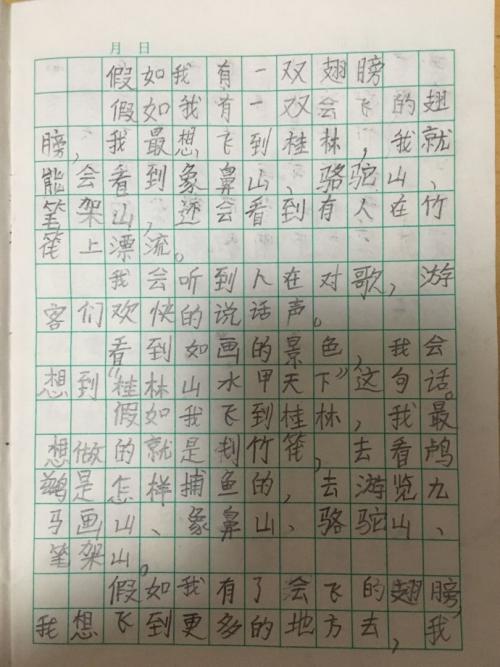 月 日
假如我有一双翅膀
假如我有一双会飞的翅
膀，我最想飞到桂林，我就
能会看到象鼻山、骆驼山、
笔架山，还会看到有人在竹
筏上漂流。
我会听到人在对歌，游
客们欢快的说话声。
看到如画的景色，我会
想到“桂林山水甲天下”这句话。
假如我飞到桂林，我最
想做的就是划竹筏，去看鸬
鹚是怎样捕鱼的，去游览九
马画山、象鼻山、骆驼山、
笔架山。
假如我有了会飞的翅膀，
我想飞到更多的地方去，我